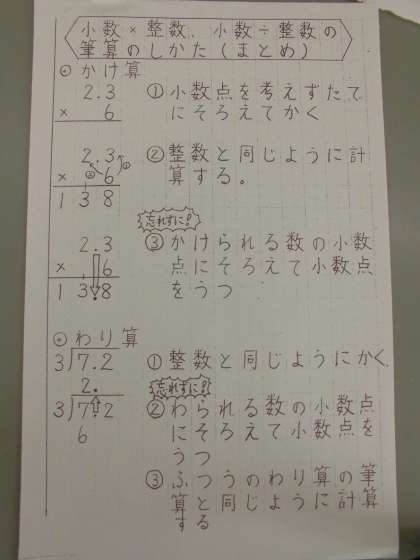 小数×整数、小数÷整数の
筆算のしかた(まとめ)
⊙かけ算
2.3
× 6
①小数点を考えずたて
にそろえてかく
2.3
× 6
138
②①
②整数と同じように計
算する。
忘れずに!
2.3
× 6
13.8
③かけられる数の小数
点にそろえて小数点
をうつ
⊙わり算
3)7.2
①整数と同じようにかく。
忘れずに!
2.
3)7.2
6
②わられる数の小数点
にそろえて小数点を
うつ
③ふつうのわり算の筆
算と同じように計算
する